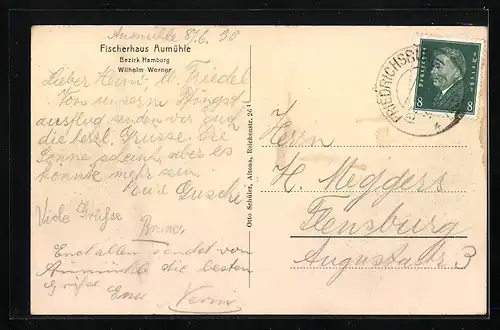 Aumühle 8/6. 30
Fischerhaus Aumühle
Bezirk Hamburg
Wilhelm Werner
Lieber Heini, u. Friedel
Von unserm Pfingst
ausflug senden wir euch
die herzl. Grüsse. Die
Sonne scheint, aber es
könnte mehr sein.
und Guschi
Viele Grüße
Bruno
Euch allen sendet von
Aumühle die besten
Grüße Euer
Otto Schüler, Altona, Reichenstr. 24
FRIEDRICHSRUH
Deutsches Reich
8 8
Herrn
H. Meggers
Flensburg
Augustastr. 3